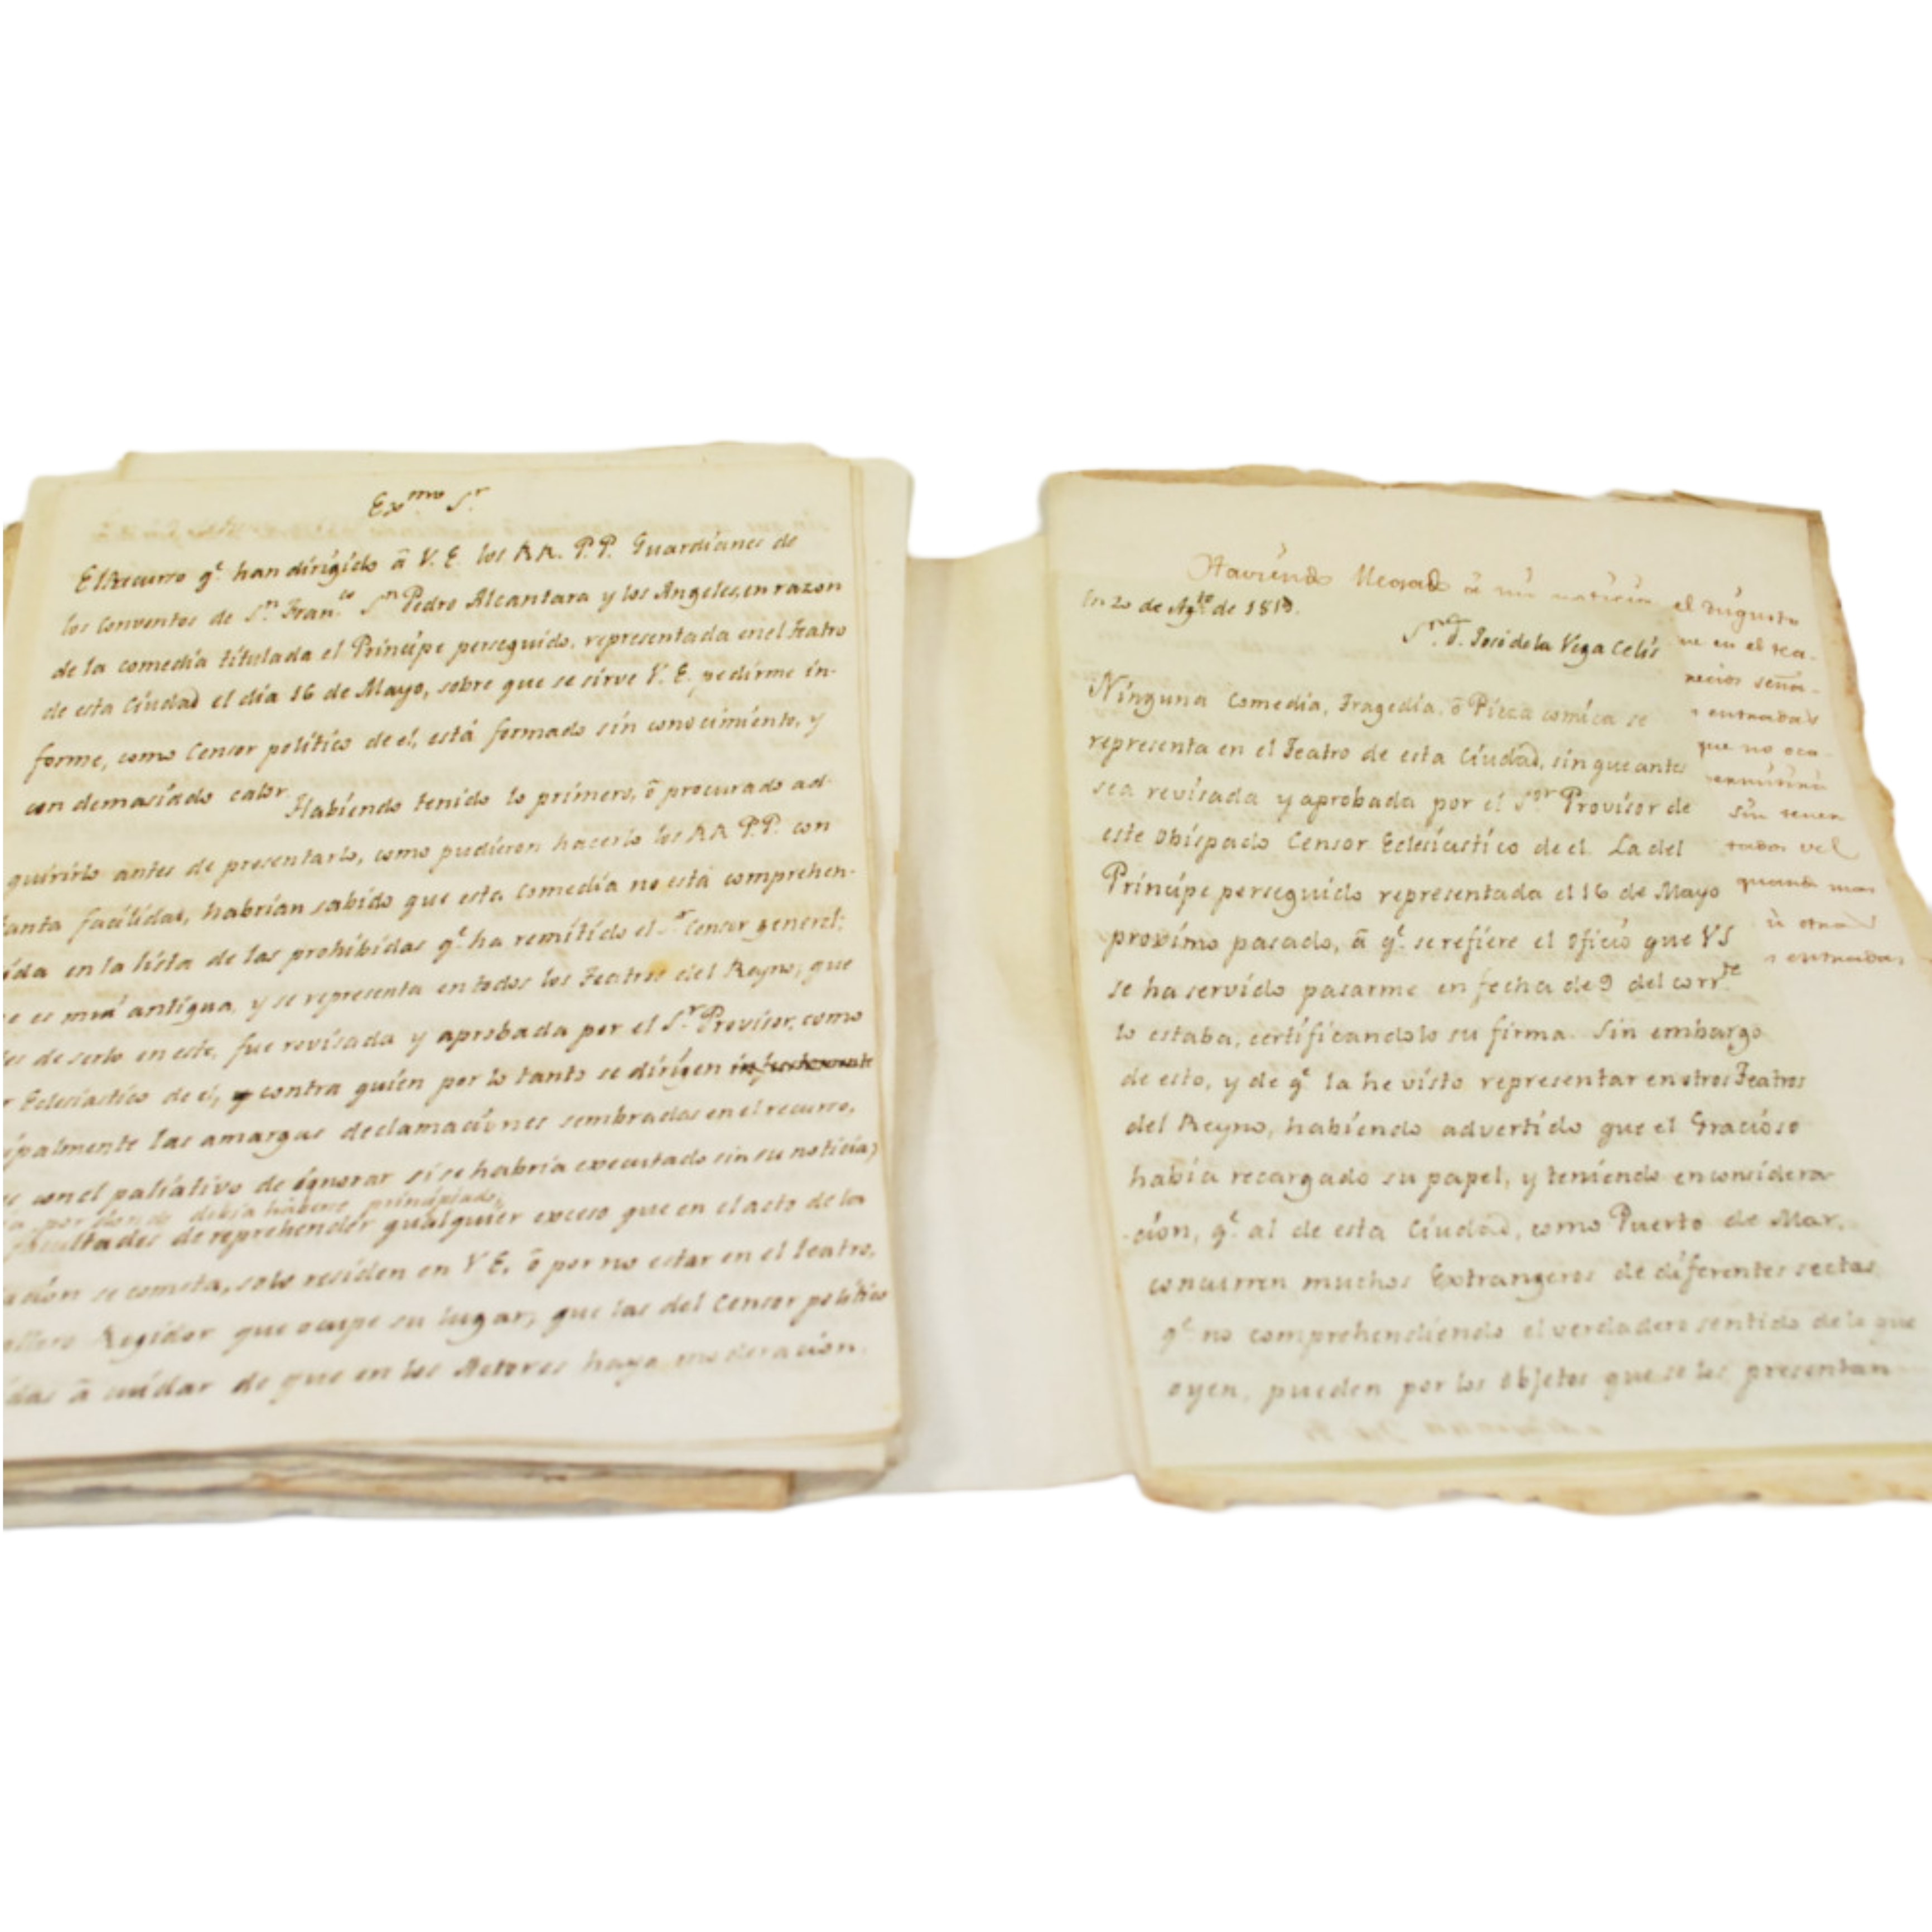 Exmo. Sr.
El Recurso qe. han dirigido ā V. E. los RR. P.P. Guardianes de
los Conventos de Sn. Franco. Sn. Pedro Alcantara y los Angeles, en razon
de la comedia titulada el Principe perseguido, representada en el Teatro
de esta Ciudad el dia 16 de Mayo, sobre que se sirve V. E. pedirme in-
forme, como Censor politico de el, está formado sin conocimiento, y
con demasiado calor. Habiendo tenido lo primero, ō procurado ad-
quirirlo antes de presentarlo, como pudieron hacerlo los RR P.P. con
tanta facilidad, habrian sabido que esta Comedia no está comprehen-
ida en la lista de las prohibidas qe. ha remitido el Sr. Censor general;
e es mui antigua, y se representa en todos los Teatros del Reyno; que
es de serlo en este, fue revisada y aprobada por el Sr. Provisor, como
r Eclesiastico de el, y contra quien por lo tanto se dirigen injustamente
ipalmente las amargas declamaciones sembradas en el recurso,
con el paliativo de ignorar si se habria executado sin su noticia;
por donde debia haberse principiado,
facultades de reprehender qualquier exceso que en el acto de la
acion se cometa, solo residen en V E. ō por no estar en el teatro,
allero Regidor que ocupe su lugar; que las del Censor politico
idas ā cuidar de que en los Actores haya moderacion.
Haviendo llegado ā mi noticia
el augusto
ue en el tea-
recios seña-
entradas
que no oca-
ermitira
sin tener
quand mas
ū otra
entradas
En 20 de Agto. de 1819.
Sr. D. José de la Vega Celis
Ninguna Comedia, Tragedia, ō Pieza comica se
representa en el Teatro de esta Ciudad, sin que antes
sea revisada y aprobada por el Sor. Provisor de
este Obispado Censor Eclesiastico de el. La del
Principe perseguido representada el 16 de Mayo
proximo pasado, ā qe. se refiere el Oficio que VS
se ha servido pasarme en fecha de 9 del corrte.
lo estaba, certificandolo su firma. Sin embargo
de esto, y de qe. la he visto representar en otros Teatros
del Reyno, habiendo advertido que el Gracioso
habia recargado su papel, y teniendo en considera-
cion, qe. al de esta Ciudad, como Puerto de Mar,
concurren muchos Extrangeros de diferentes sectas
qe. no comprehendiendo el verdadero sentido de lo que
oyen, pueden por los Objetos que se les presentan